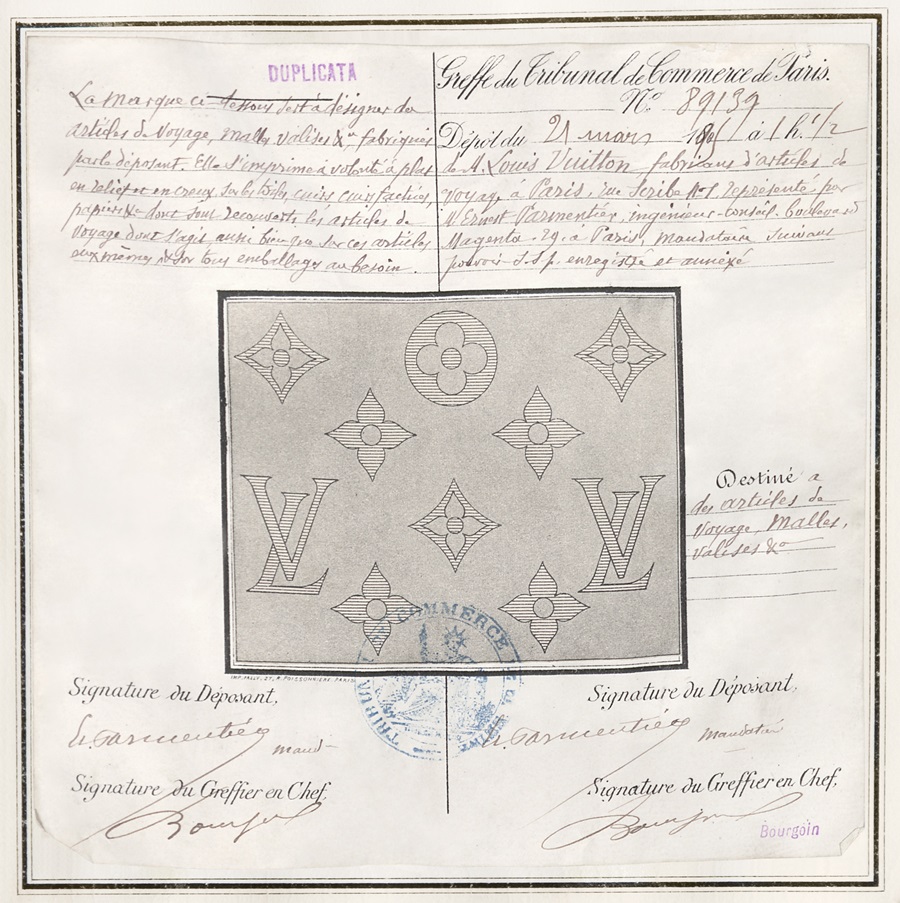 DUPLICATA
La Marque ci-dessous sert à désigner des
articles de Voyage, Malles, valises &a fabriqués
par le déposant. Elle s'imprime à volonté à plat
en relief et en creux sur les toiles, cuirs, cuirs factices,
papiers &a dont sont recouverts les articles de
Voyage dont s'agit aussi bien que sur ces articles
eux-mêmes & sur tous emballages au besoin.
Greffe du Tribunal de Commerce de Paris.
No. 89139
Dépôt du 21 mars à 1 h. 1/2
de M. Louis Vuitton, fabricant d'articles de
Voyage à Paris, rue Scribe No 1, représenté par
M Ernest Parmentier, ingénieur-conseil. Boulevard
Magenta 29, à Paris, mandataire suivant
pouvoir S.S.p. enregistré et annexé
LV
LV
Destiné à
des articles de
Voyage, Malles,
valises &a
TRIBUNAL DE COMMERCE DE LA SEINE
Signature du Déposant,
E. Parmentier mand-
Signature du Greffier en Chef,
Bourgoin
Signature du Déposant,
E. Parmentier Mandataire
Signature du Greffier en Chef,
Bourgoin
Bourgoin